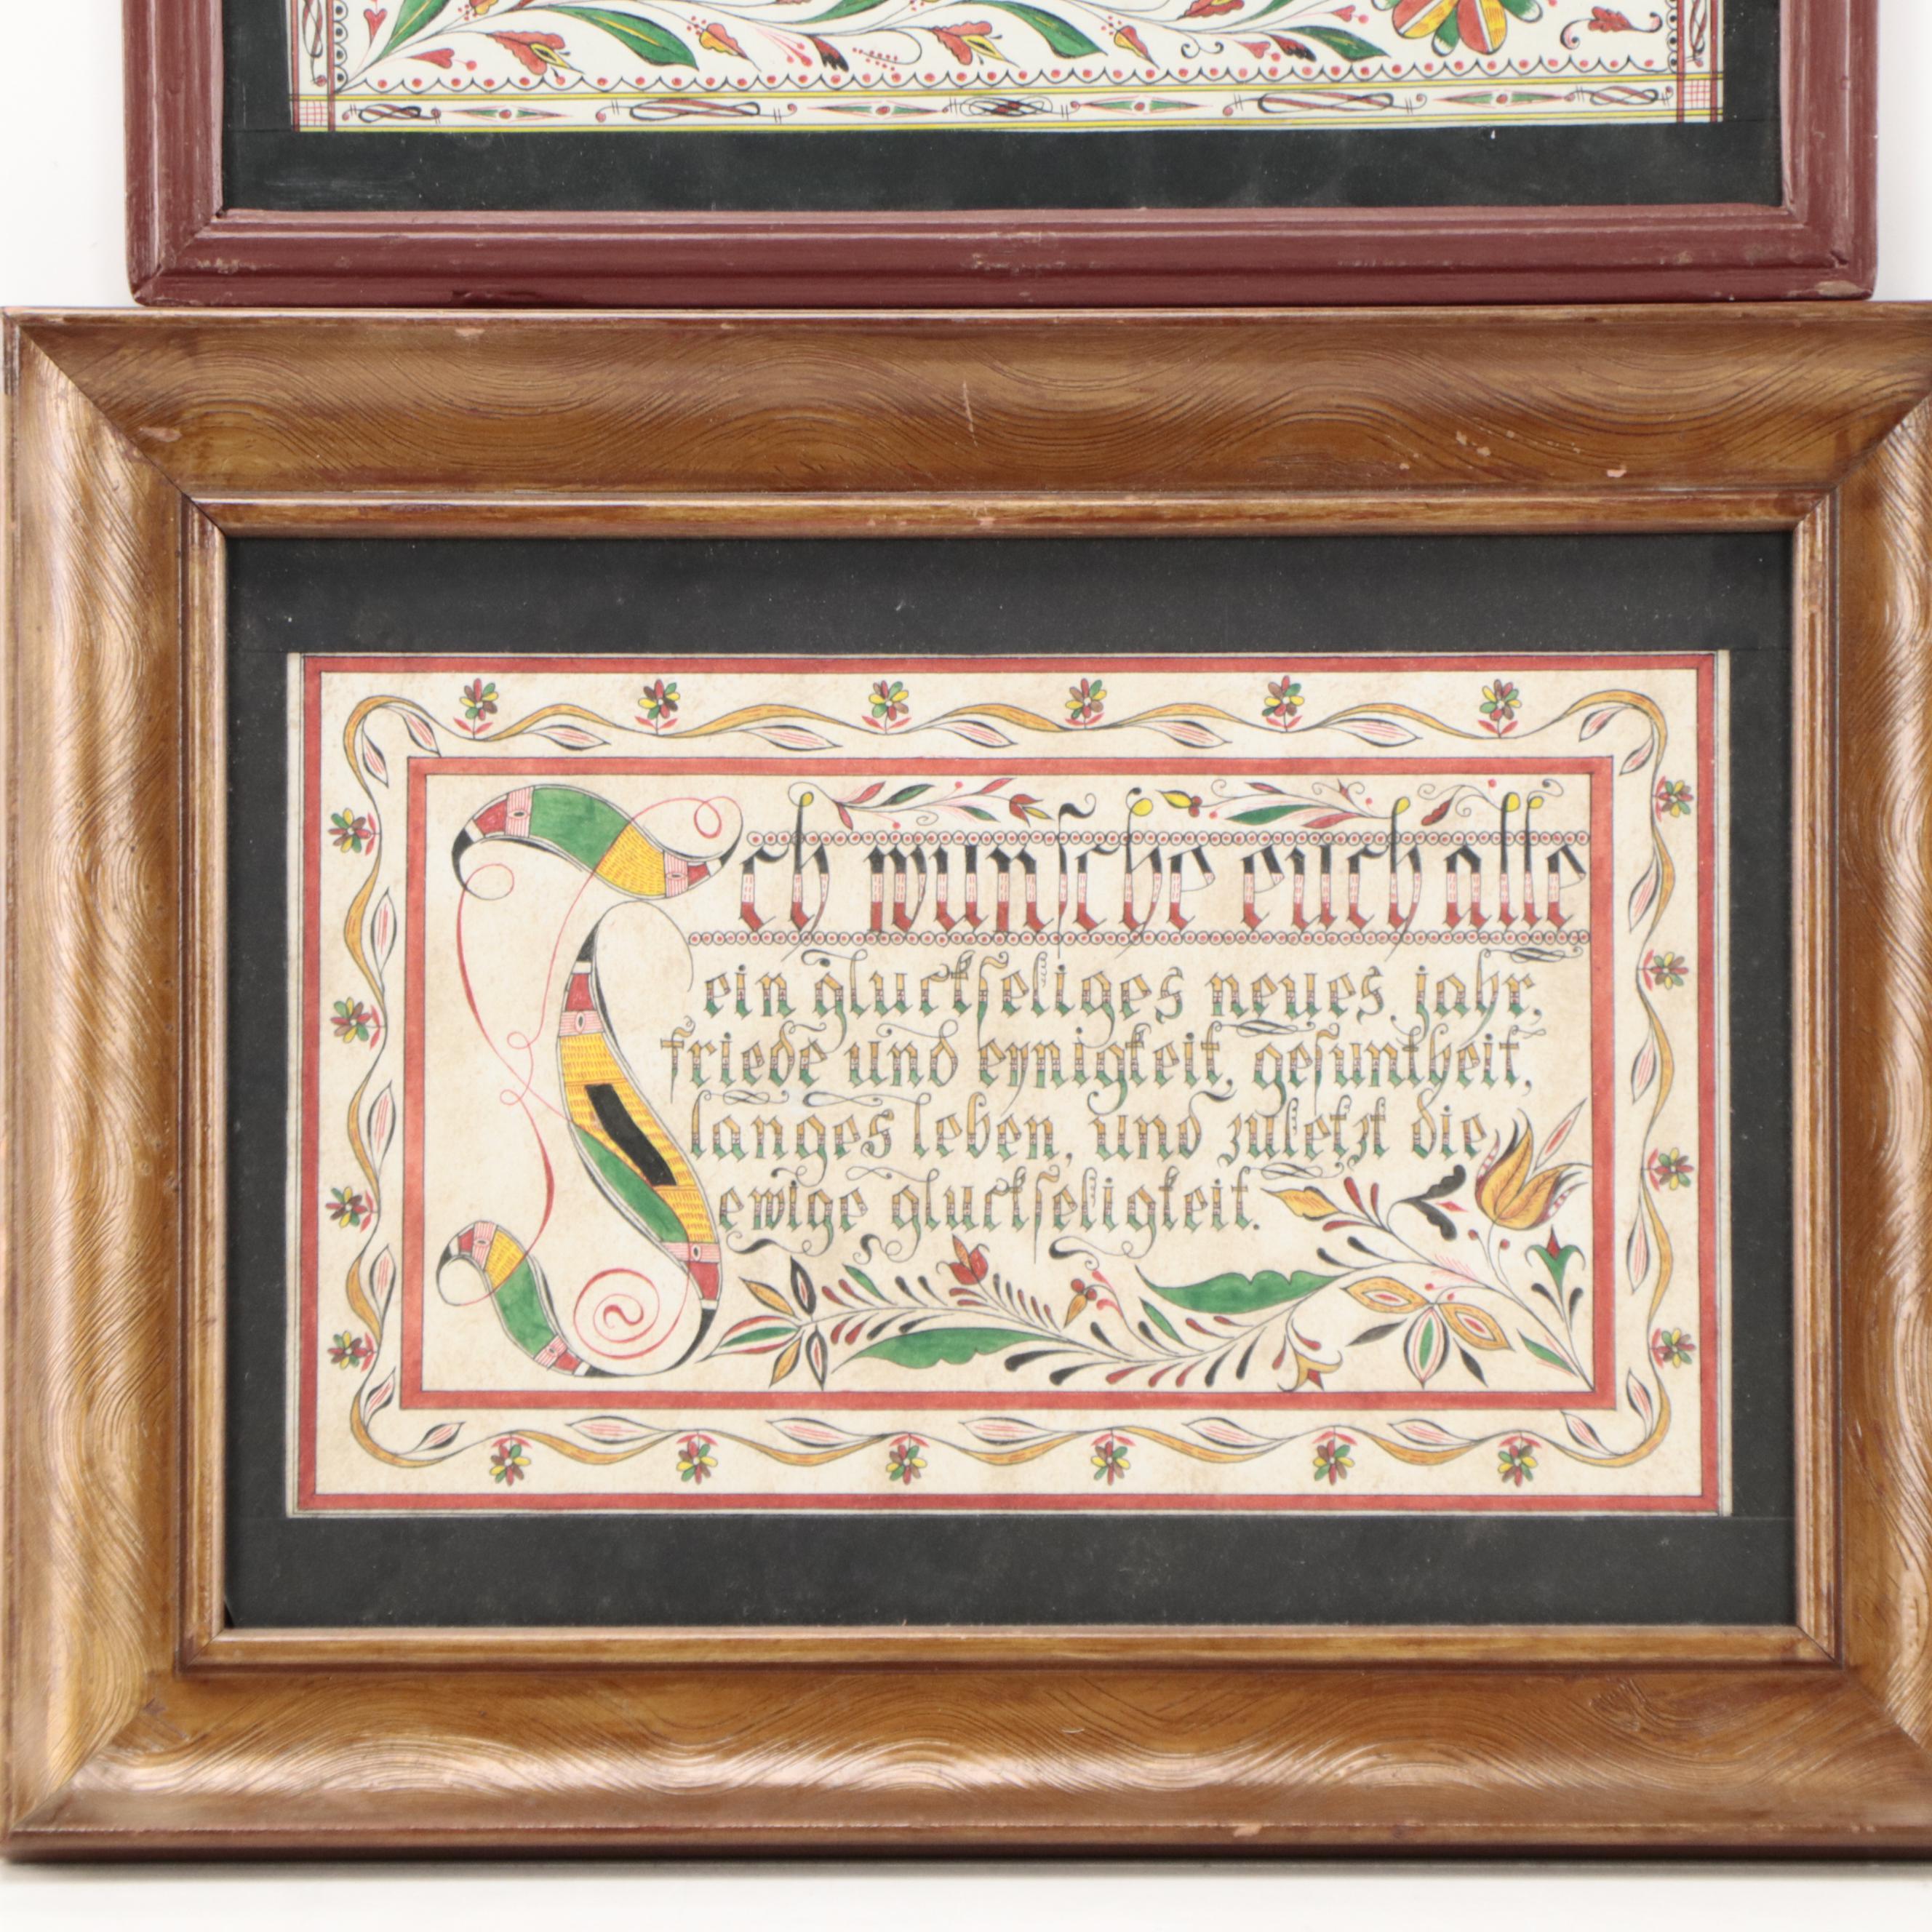 Ich wunsche euch alle
ein gluckseliges neues jahr,
friede und eynigkeit, gesuntheit,
langes leben, und zuletzt die
ewige gluckseligkeit.